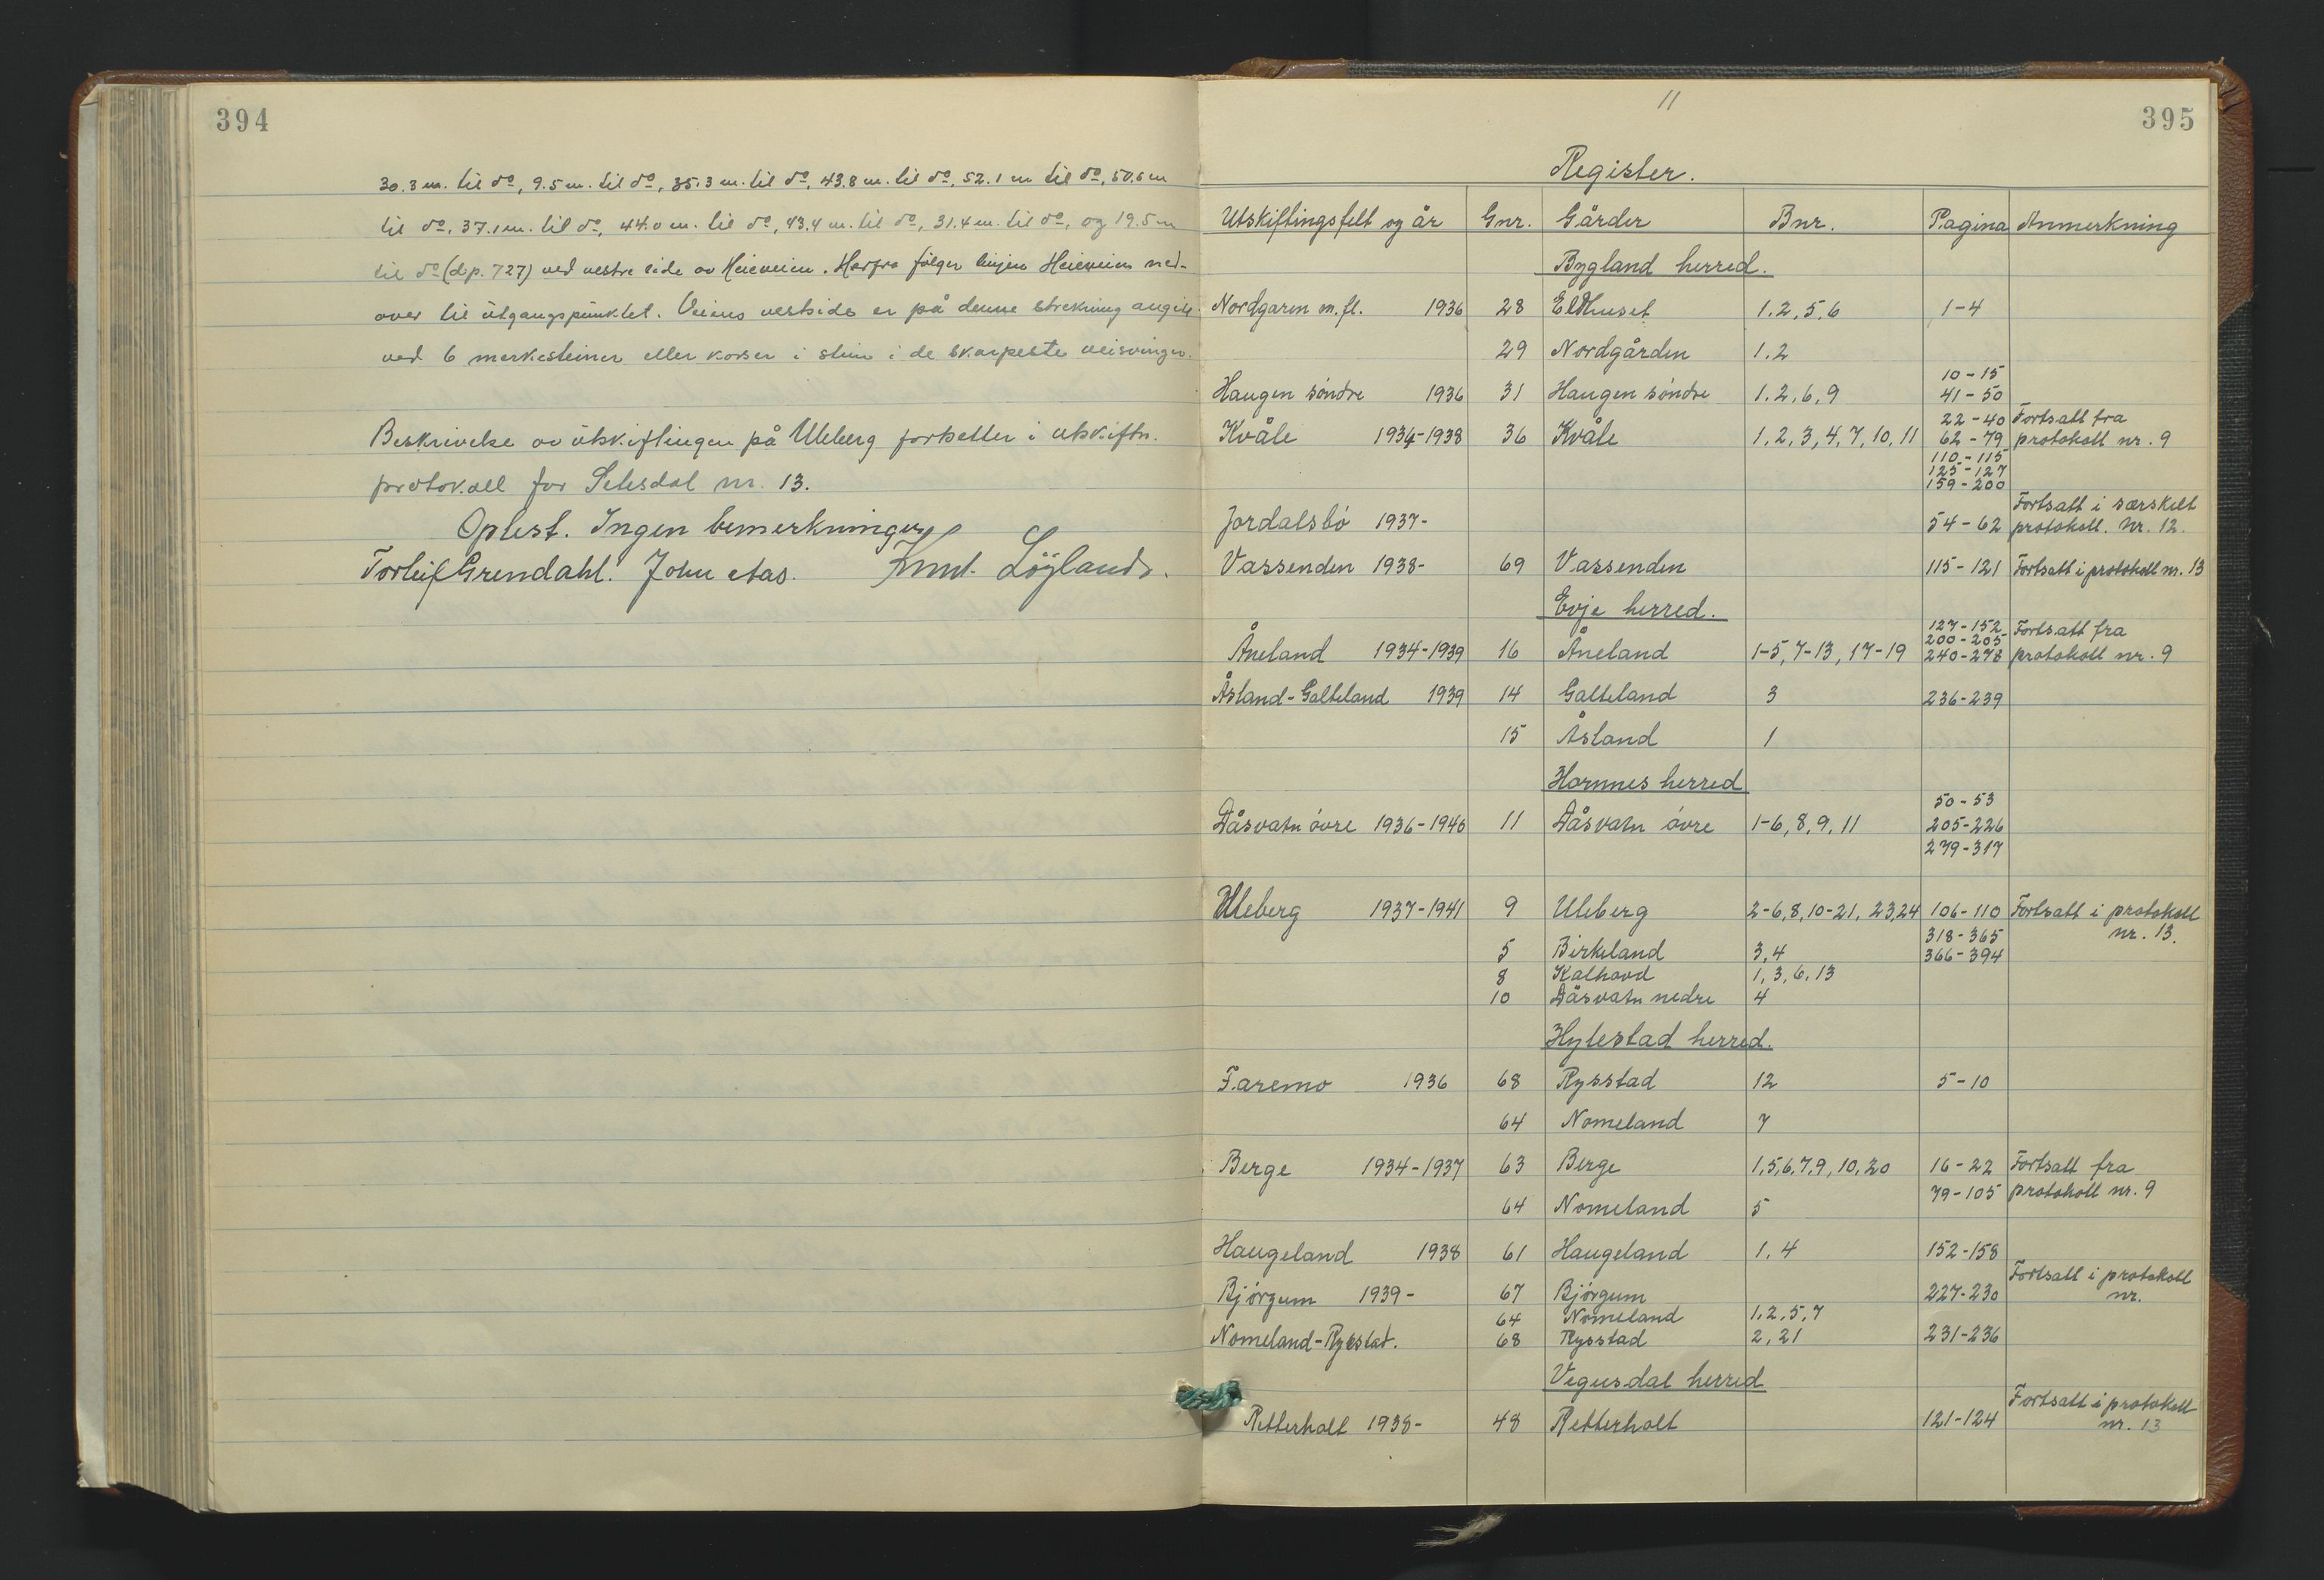 394
30.3 m. til do, 9.5 m. til do, 35.3 m. til do, 43.8 m. til do, 52.1 m til do, 50.6 m
til do, 37.1 m. til do, 44.0 m. til do, 43.4 m. til do, 31.4 m. til do, og 19.5 m
til do (dp. 727) ved vestre side av Heieveien. Herfra følger linjen Heieveien ned-
over til utgangspunktet. Veiens vestside er på denne strekning angitt
ved 6 merkesteiner eller korser i stein i de skarpeste veisvinger.
Beskrivelse av utskiftingen på Uleberg fortsetter i utskiftn.
protokoll for Setesdal nr. 13.
Oplest. Ingen bemerkninger
Torleif Grendahl. John Aas. Knut Löyland.
11
395
Register.
Utskiftingsfelt og år Gnr. Gårder Bnr. Pagina Anmerkning
Bygland herred.
Nordgarm m.fl. 1936 28 Eldhuset 1, 2, 5, 6 1-4
29 Nordgården 1, 2
10-15
Haugen söndre 1936 31 Haugen söndre 1, 2, 6, 9 41-50
22-40 Fortsatt fra
Kvåle 1934-1938 36 Kvåle 1, 2, 3, 4, 7, 10, 11 62-79 protokoll nr. 9
110-115
125-127
159-200
Fortsatt i særskilt
Jordalsbö 1937- 54-62 protokoll. Nr. 12.
Vassenden 1938- 69 Vassenden 115-121 Fortsatt i protokoll nr. 13
Evje herred.
127-152 Fortsatt fra
200-205
Åneland 1934-1939 16 Åneland 1-5, 7-13, 17-19 240-278 protokoll nr. 9
Åsland-Galteland 1939 14 Galteland 3 236-239
15 Åsland 1
Hornnes herred
50-53
Dåsvatn övre 1936-1940 11 Dåsvatn övre 1-6, 8, 9, 11 205-226
279-317
Uleberg 1937-1941 9 Uleberg 2-6, 8, 10-21, 23, 24 106-110 Fortsatt i protokoll
318-365 nr. 13.
5 Birkeland 3, 4 366-394
8 Kalhovd 1, 3, 6, 13
10 Dåsvatn nedre 4
Hylestad herred.
Faremo 1936 68 Rysstad 12 5-10
64 Nomeland 7
Berge 1934-1937 63 Berge 1, 5, 6, 7, 9, 10, 20 16-22 Fortsatt fra
79-105 protokoll nr. 9
64 Nomeland 5
Haugeland 1938 61 Haugeland 1, 4 152-158
Fortsatt i protokoll
Björgum 1939- 67 Björgum 227-230 nr.
64 Nomeland 1, 2, 5, 7
Nomeland-Rysstad. 68 Rysstad 2, 21 231-236
Vegusdal herred
Fortsatt i protokoll
Retterholt 1938- 48 Retterholt 121-124 nr. 13